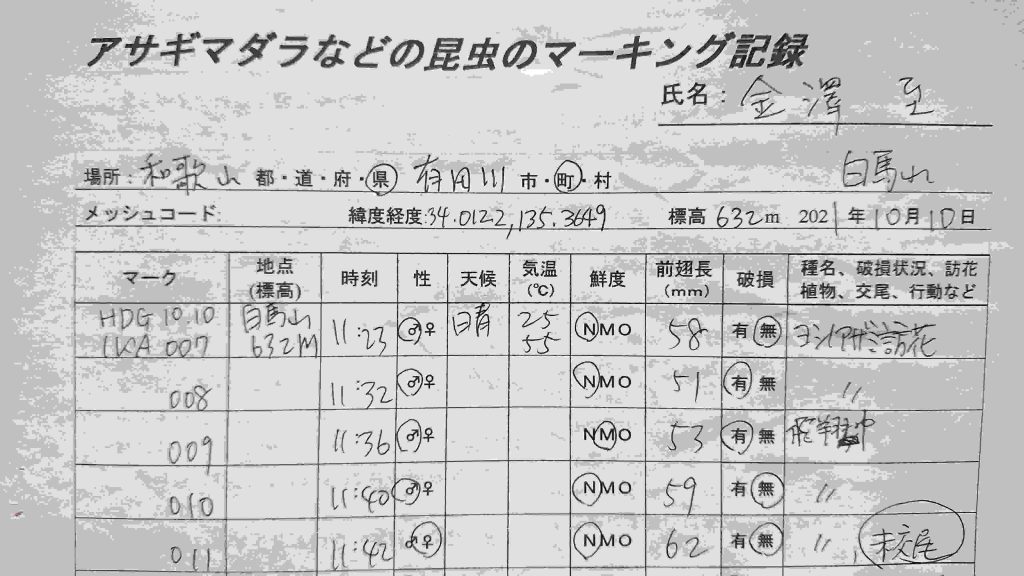 アサギマダラなどの昆虫のマーキング記録
氏名：金澤 至
場所：和歌山 都・道・府・県 有田川 市・町・村 白馬山
メッシュコード 緯度経度:34.0122,135.3649 標高 632m 2021年10月10日
マーク 地点(標高) 時刻 性 天候 気温(℃) 鮮度 前翅長(mm) 破損 種名、破損状況、訪花植物、交尾、行動など
HDG 10.10 IKA 007 白馬山 632M 11:23 ♂♀ 晴 25 55 NMO 58 有 無 ヨシノアザミ訪花
008 11:32 ♂♀ NMO 51 有 無 〃
009 11:36 ♂♀ NMO 53 有 無 飛翔中
010 11:40 ♂♀ NMO 59 有 無 〃
011 11:42 ♂♀ NMO 62 有 無 〃 未交尾